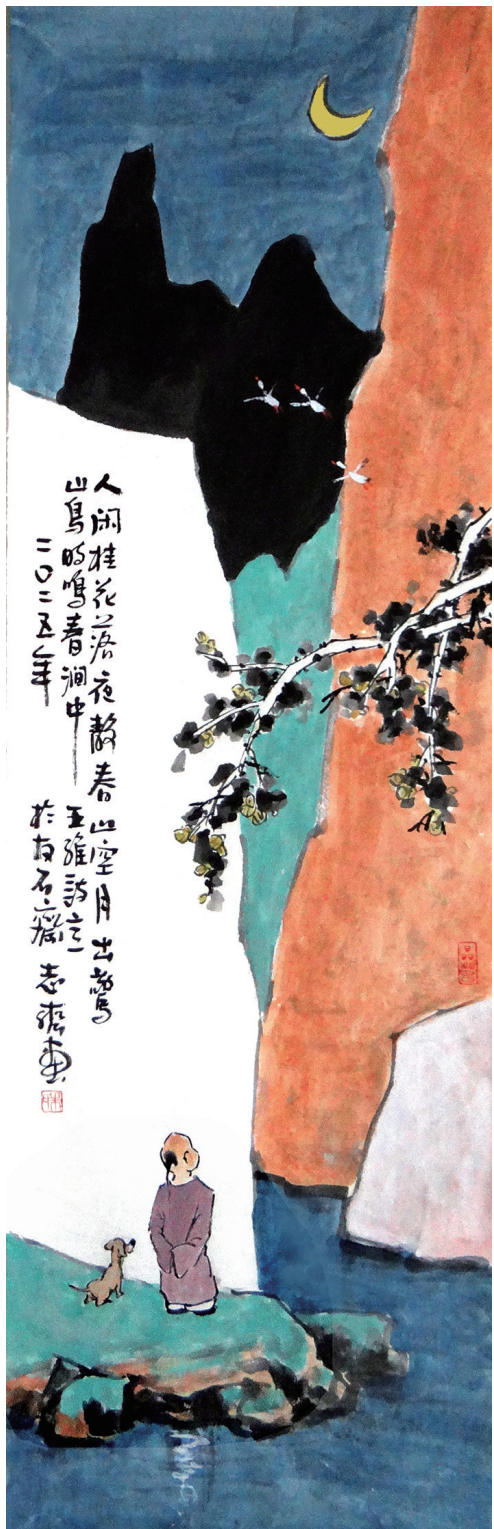 人闲桂花落夜靜春山空月出驚
山鳥時鳴春澗中 王維詩意
二〇二五年 於友石齋 志濟畫